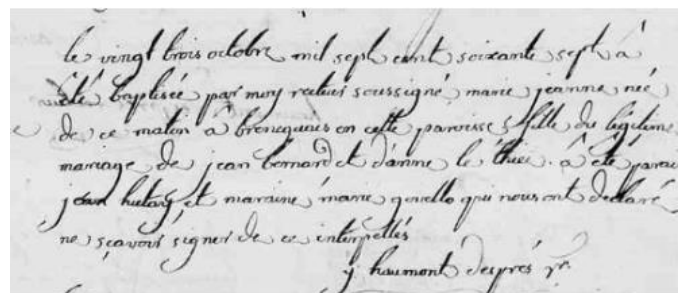 le vingt trois octobre mil sept cent soixante sept â
êté baptisée par moy recteur soussigné marie jeanne née
de ce matin â en cette paroisse fille du légitime
mariage de jean bernard et d'anne le thiec. â êté parain
jean et maraine marie qui nous ont declaré
ne sçavoir signer de ce interpellés
y haumont després